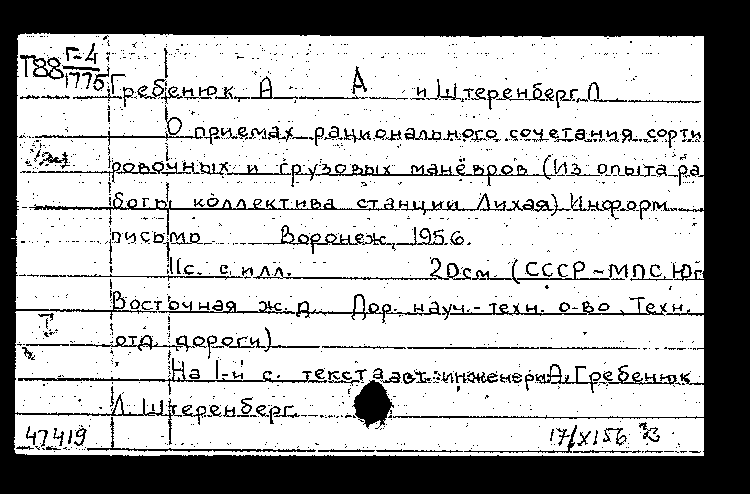 Т88 Г-4
1775
Гребенюк, А А и Штеренберг, Л
О приемах рационального сочетания сорти
ровочных и грузовых манёвров (Из опыта ра
боты коллектива станции Лихая) Информ
письмо Воронеж, 1956.
11с. с илл. 20см. (СССР-МПС. Юг
Восточная ж.д. Дор. науч.-техн. о-во. Техн.
I
отд дороги)
На 1-й с. текста авт.: инженеры А. Гребенюк
Л. Штеренберг.
47419 17/X156